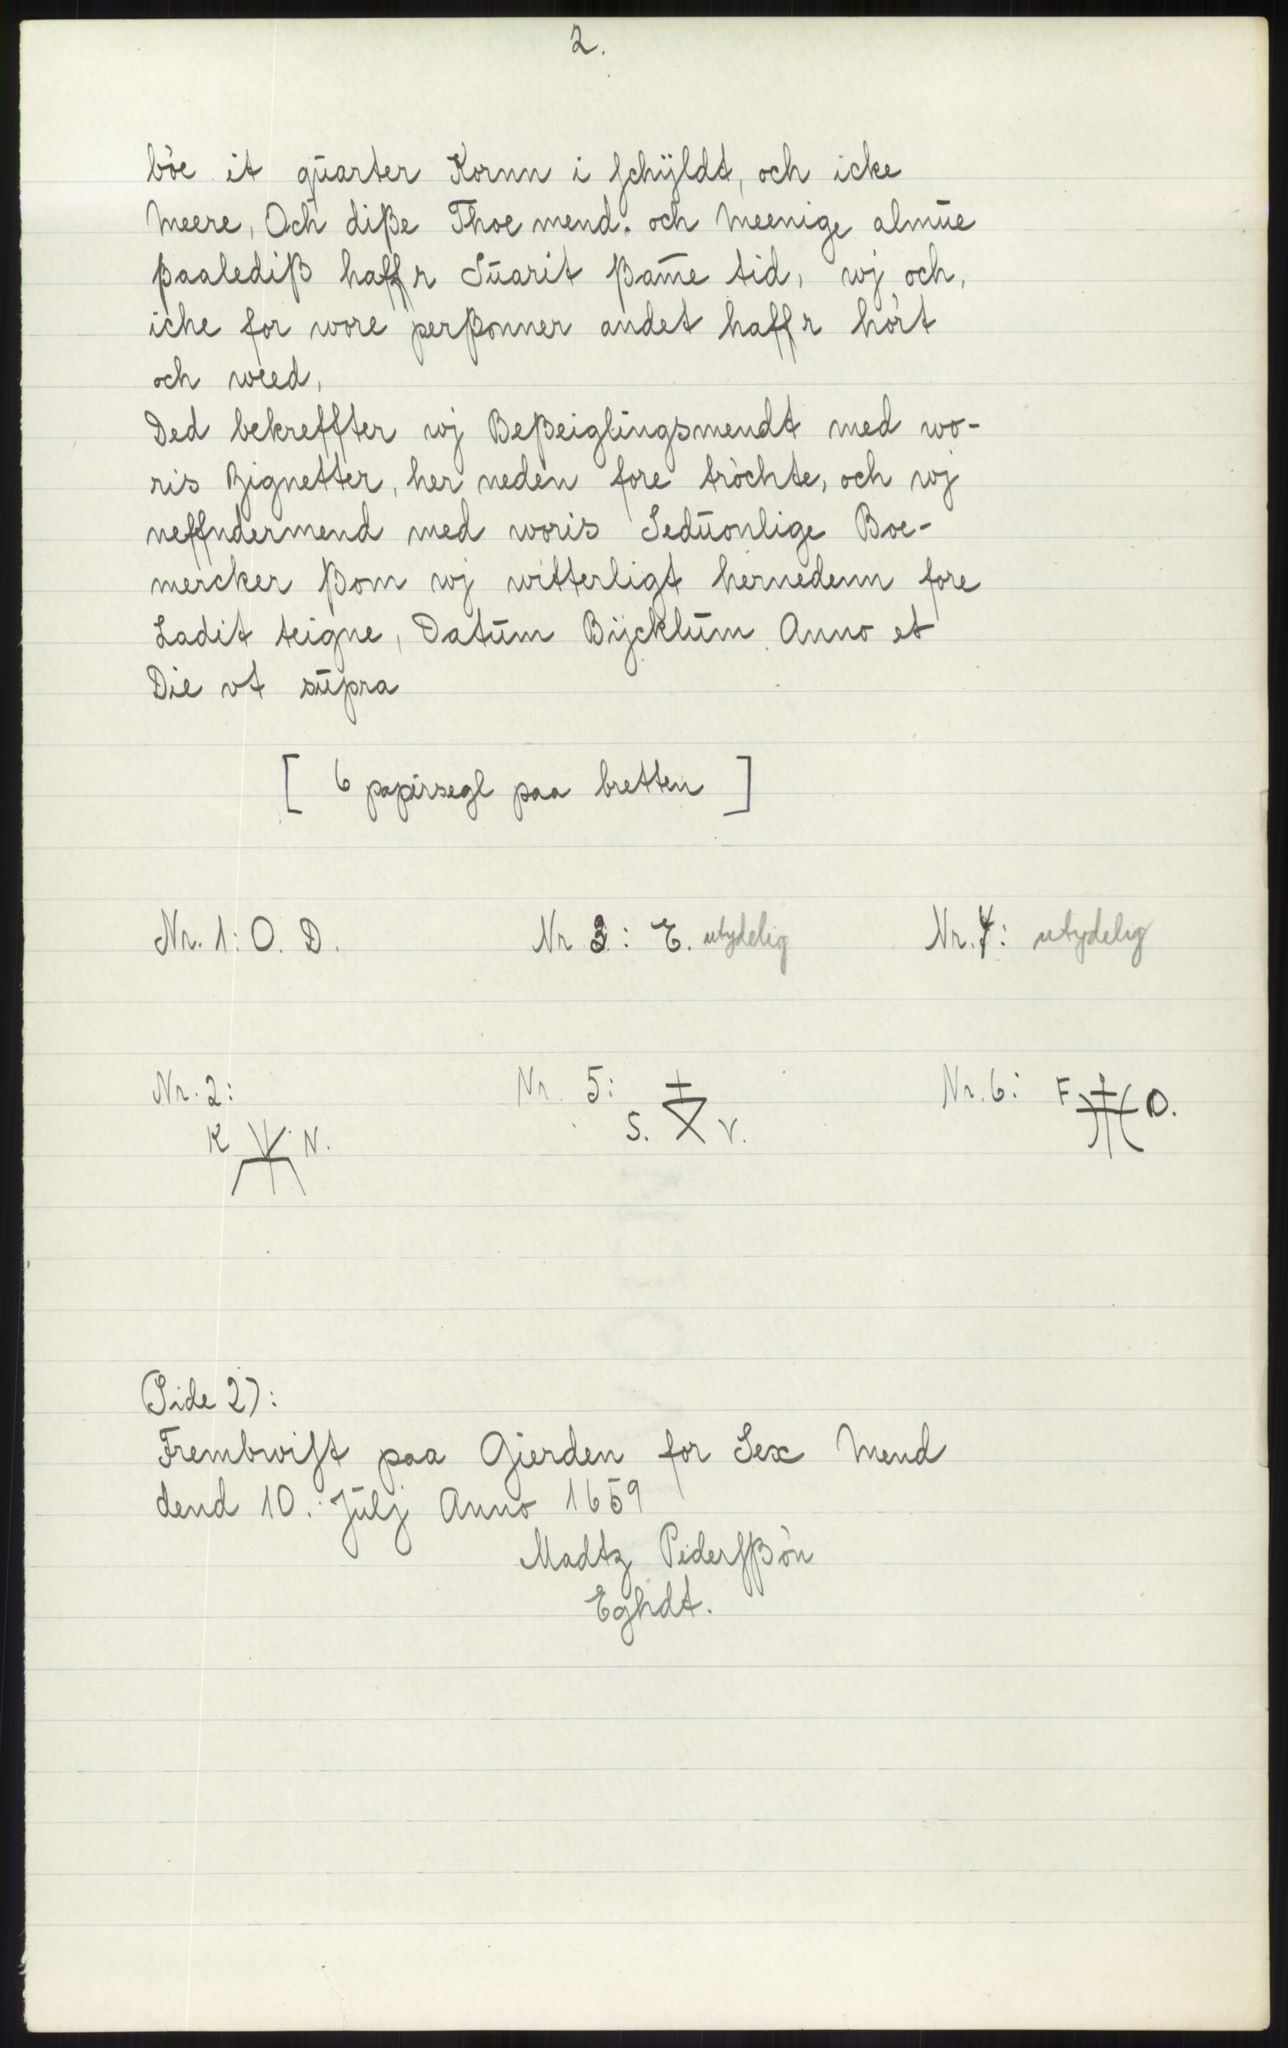 2.
bòe it qūarter Kornn i schÿldt, och icke
Meere, Och diße Thoe mend. och Meenige almūe
ßaalediß haffr Sūarit ßam̄e tid, wj och,
iche for wore perßonner andet haffr hòrt
och weed,
Ded bekreffter wj Beßeiglingsmendt med wo-
ris Zignetter, her neden fore tròchte, och wj
neffndermend med woris Sedūonlige Boe-
mercker ßom wj witterligt hernedenn fore
Ladit teigne, Datūm Bÿcklūm Anno et
Die vt sūpra
[ 6 papirsegl paa bretten ]
Nr. 1: O. D. Nr 3: E. utydelig Nr. 4: utydelig
Nr. 2: Nr. 5: Nr. 6: F O.
K N. S. V.
(Side 2):
Frembwist paa Gierden for Sex Mend
dend 10. Jūlj Anno 1659
Madtz Pidersßòn
Eghdt.